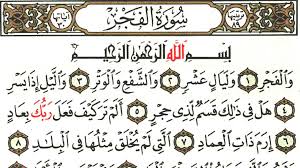 سُورَةُ الفَجْرِ
بِسْمِ اللَّهِ الرَّحْمَٰنِ الرَّحِيمِ
وَالْفَجْرِ ۝١ وَلَيَالٍ عَشْرٍ ۝٢ وَالشَّفْعِ وَالْوَتْرِ ۝٣ وَاللَّيْلِ إِذَا يَسْرِ
۝٤ هَلْ فِي ذَٰلِكَ قَسَمٌ لِّذِي حِجْرٍ ۝٥ أَلَمْ تَرَ كَيْفَ فَعَلَ رَبُّكَ بِعَادٍ
۝٦ إِرَمَ ذَاتِ الْعِمَادِ ۝٧ الَّتِي لَمْ يُخْلَقْ مِثْلُهَا فِي الْبِلَادِ ۝٨